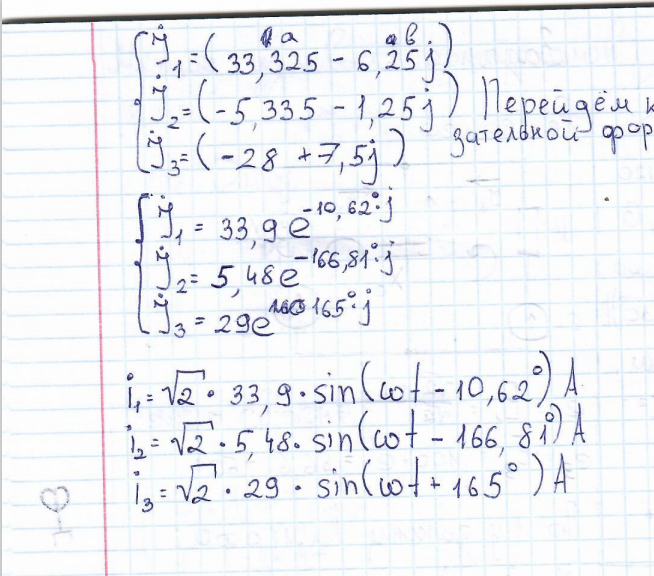 a в
İ₁ = (33,325 - 6,25j)
İ₂ = (-5,335 - 1,25j) Перейдём к
İ₃ = (-28 + 7,5j) зательной фор
İ₁ = 33,9 e^-10,62°·j
İ₂ = 5,48e^-166,81°·j
İ₃ = 29e^165°·j
i₁ = √2 · 33,9 · sin(ωt - 10,62°) A
i₂ = √2 · 5,48 · sin(ωt - 166,81°) A
i₃ = √2 · 29 · sin(ωt + 165°) A